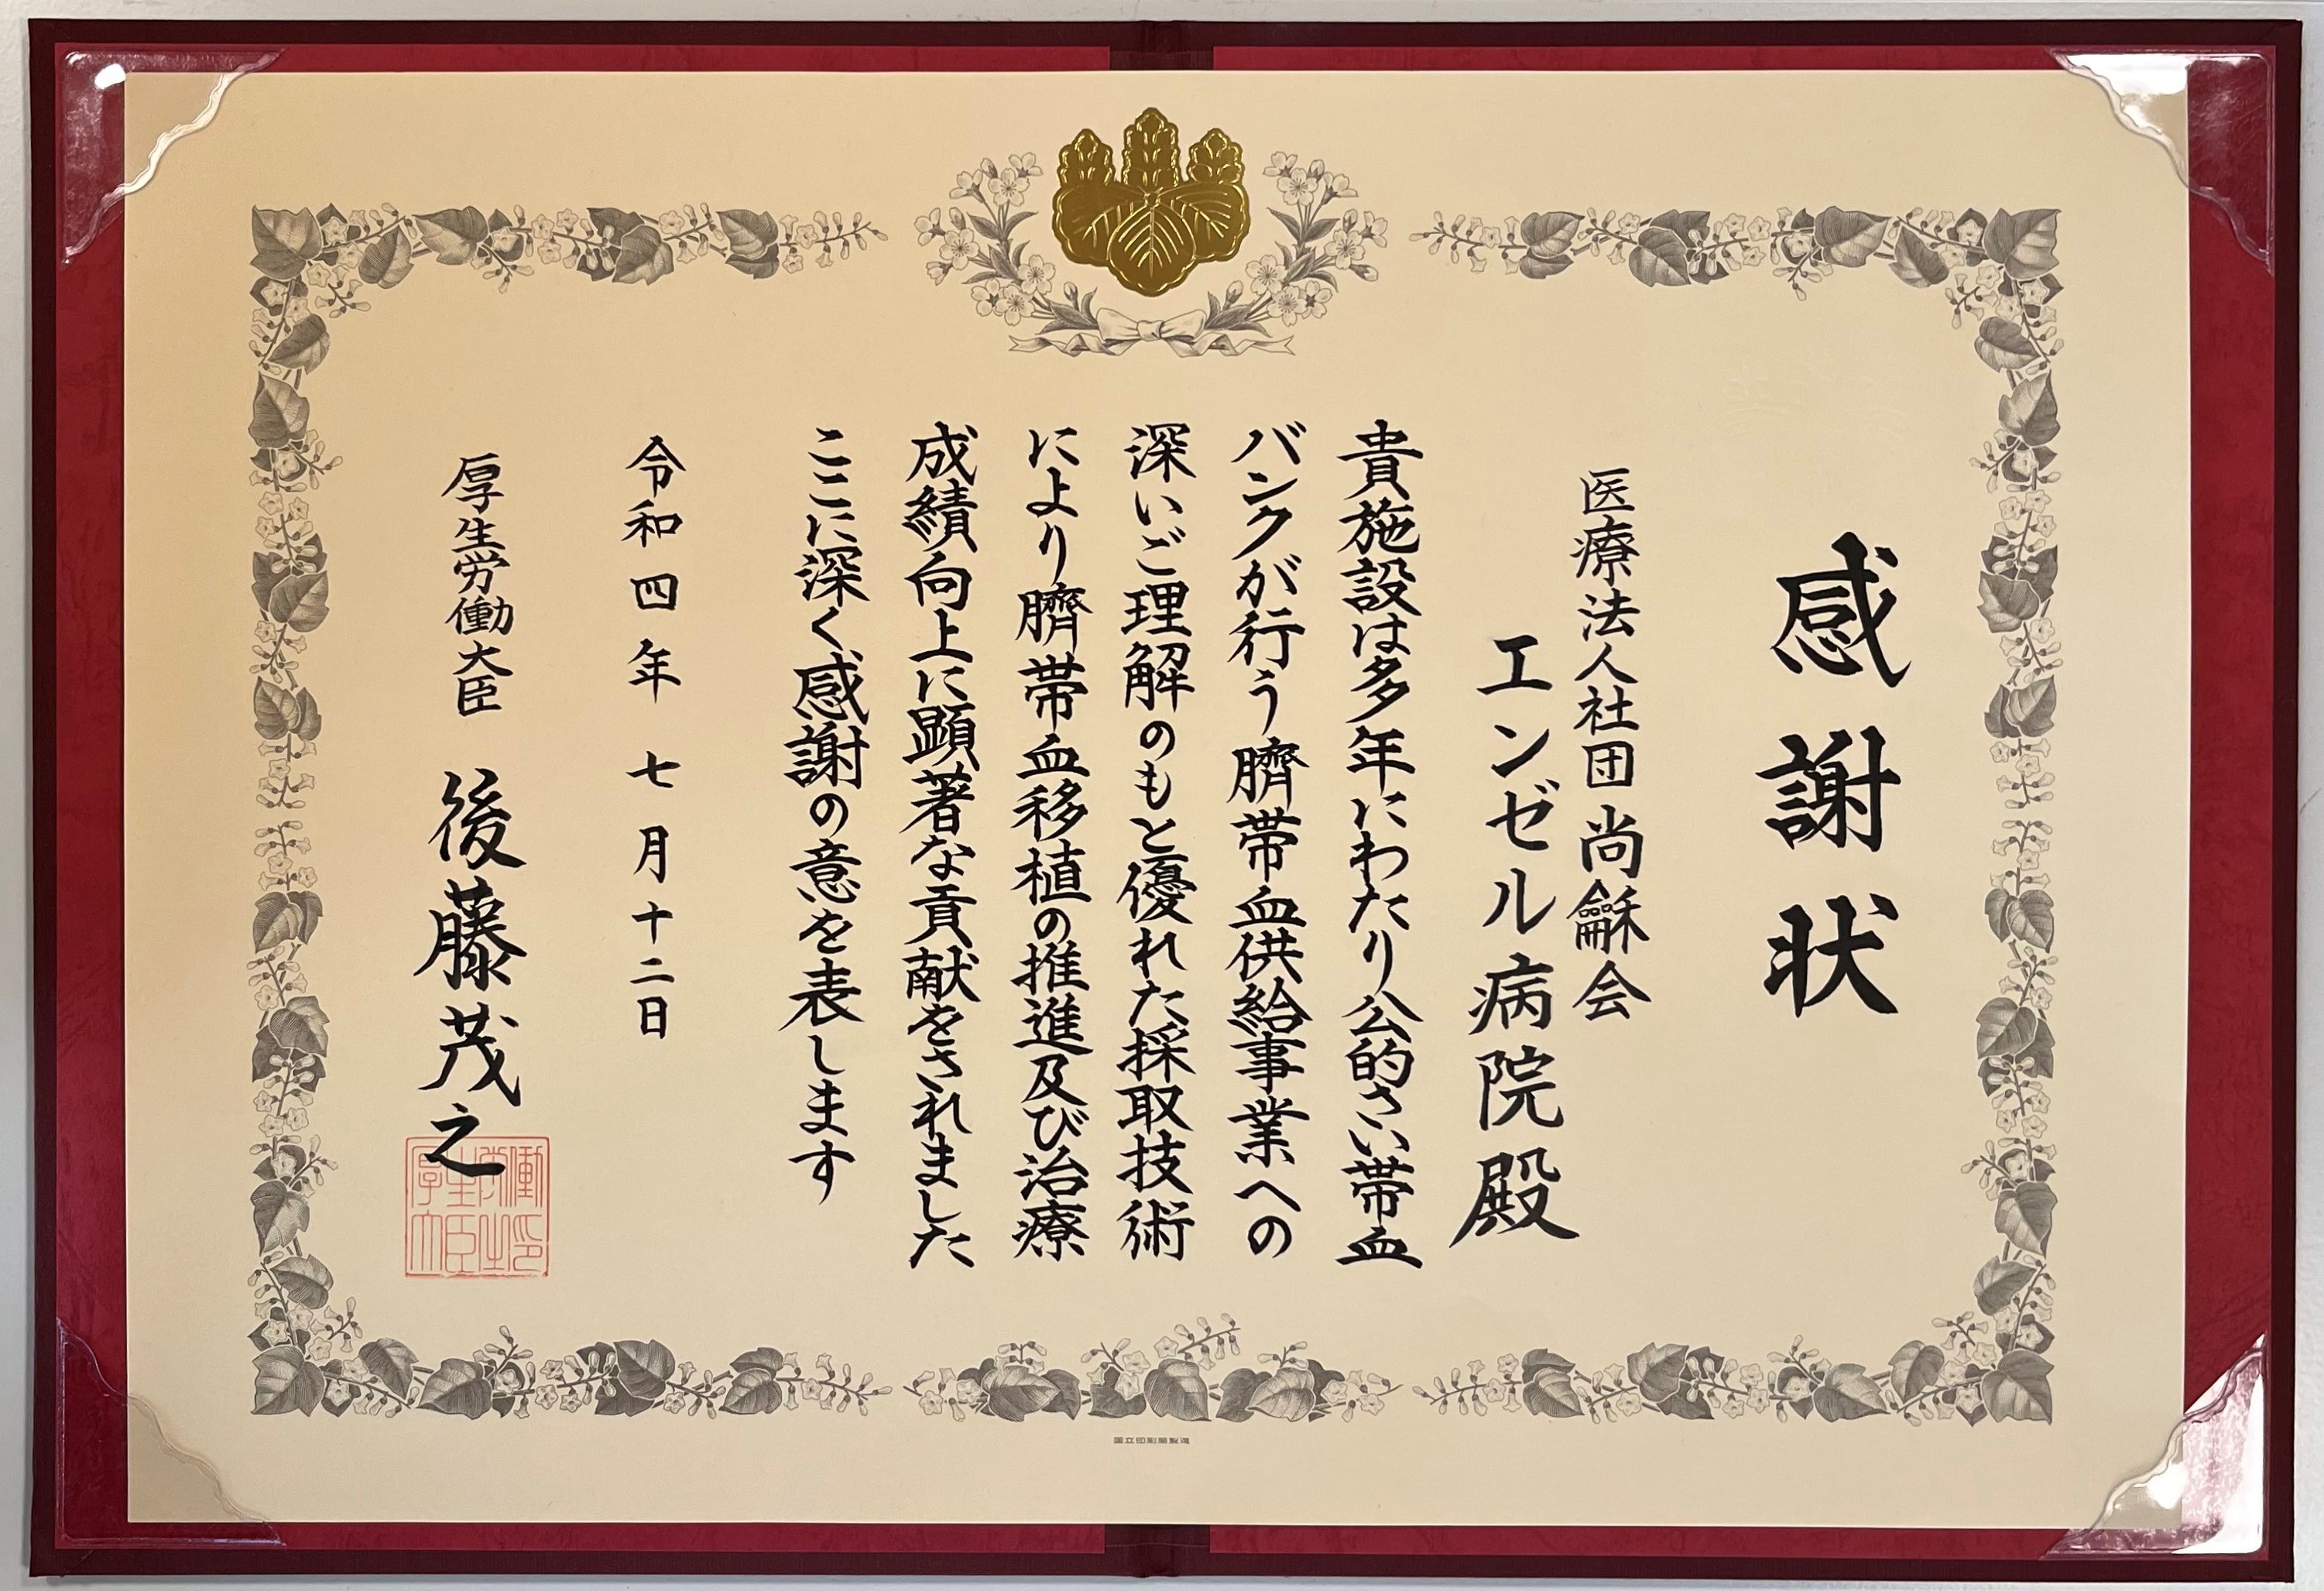 感謝状
医療法人社団尚龢会
エンゼル病院殿
貴施設は多年にわたり公的さい帯血
バンクが行う臍帯血供給事業への
深いご理解のもと優れた採取技術
により臍帯血移植の推進及び治療
成績向上に顕著な貢献をされました
ここに深く感謝の意を表します
令和四年七月十二日
厚生労働大臣 後藤茂之
国立印刷局製造